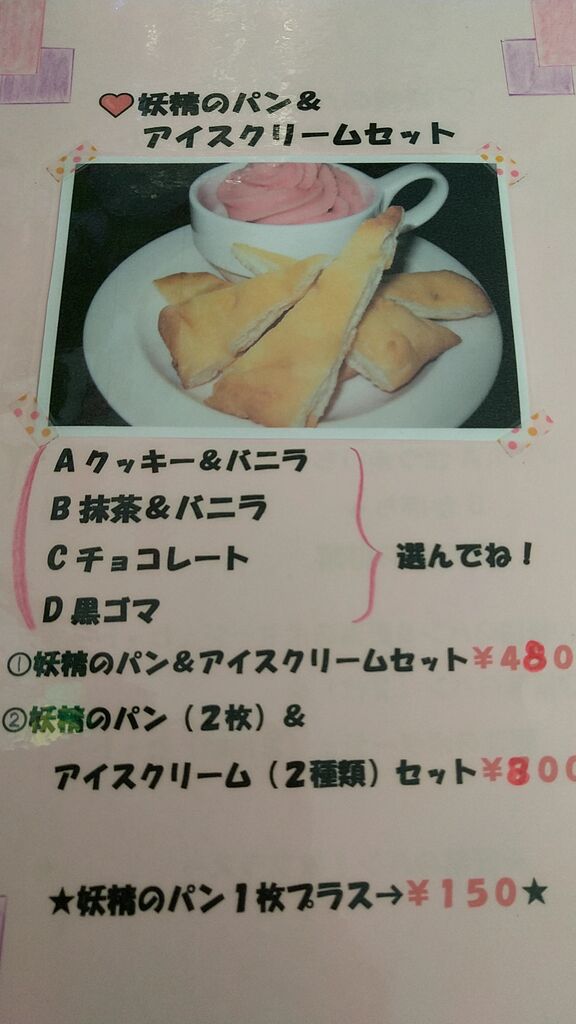 妖精のパン&
アイスクリームセット
Aクッキー&バニラ
B抹茶&バニラ
Cチョコレート
D黒ゴマ
選んでね!
①妖精のパン&アイスクリームセット¥480
②妖精のパン(2枚)&
アイスクリーム(2種類)セット¥800
★妖精のパン1枚プラス→¥150★